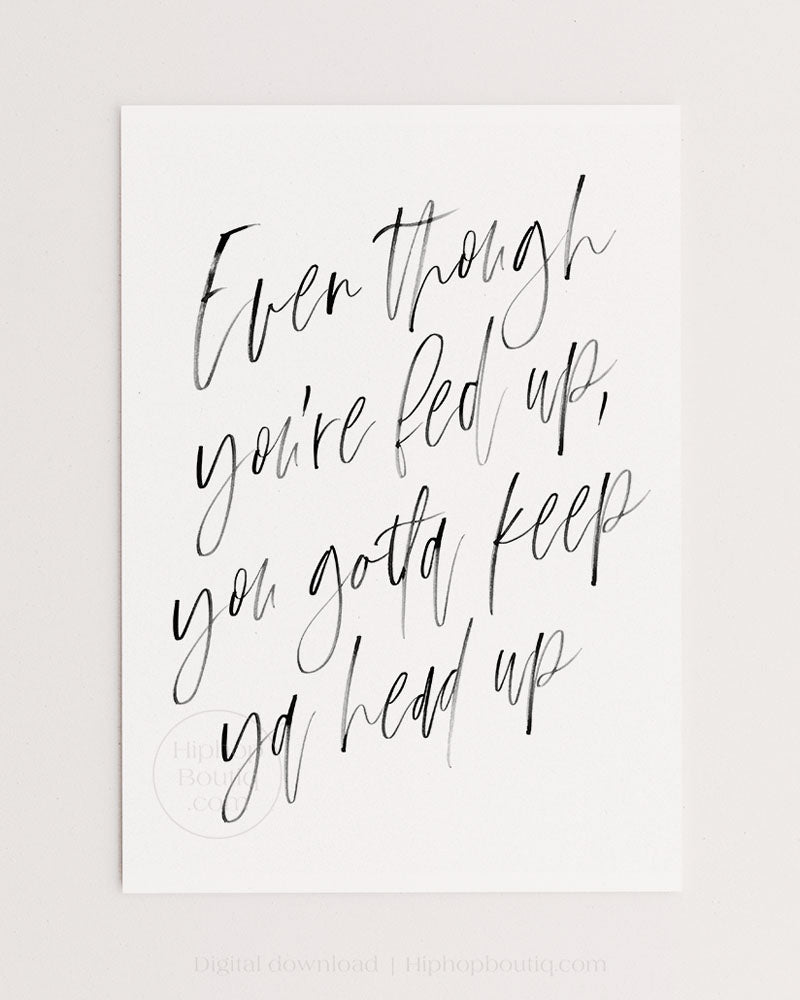 Even though
you're fed up,
you gotta keep
ya head up
Hiphop
Boutiq
.com
Digital download | Hiphopboutiq.com